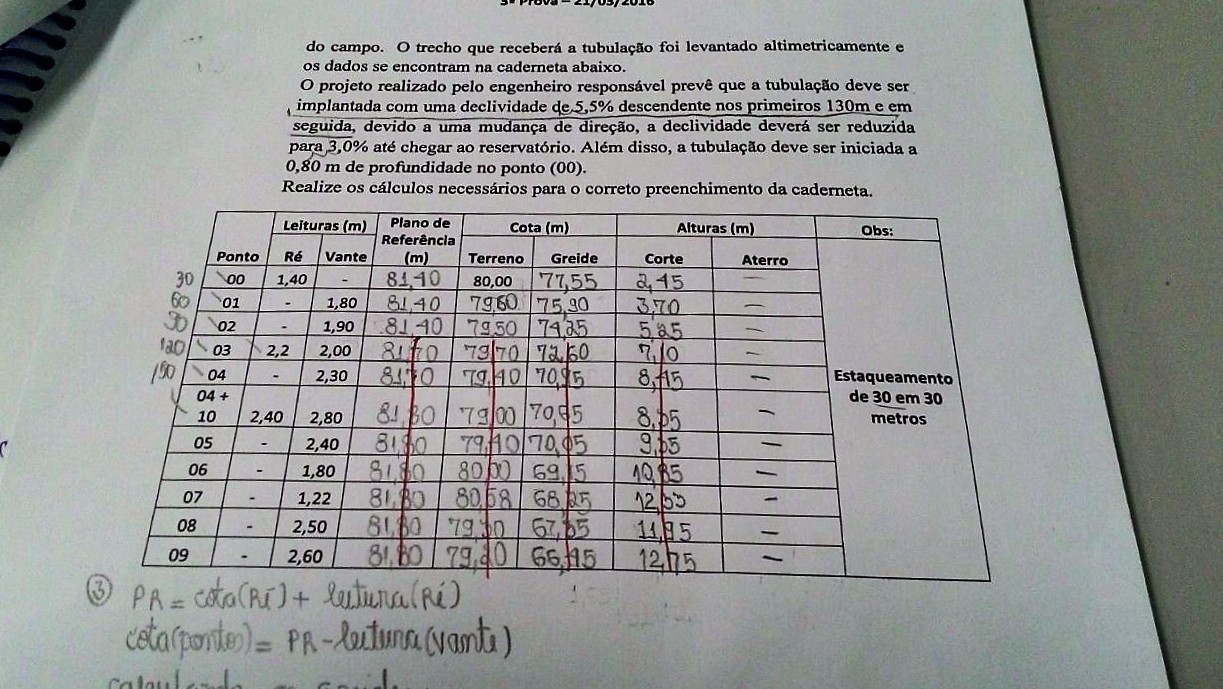 3ª Prova – 21/03/2016
do campo. O trecho que receberá a tubulação foi levantado altimetricamente e
os dados se encontram na caderneta abaixo.
O projeto realizado pelo engenheiro responsável prevê que a tubulação deve ser
implantada com uma declividade de 5,5% descendente nos primeiros 130m e em
seguida, devido a uma mudança de direção, a declividade deverá ser reduzida
para 3,0% até chegar ao reservatório. Além disso, a tubulação deve ser iniciada a
0,80 m de profundidade no ponto (00).
Realize os cálculos necessários para o correto preenchimento da caderneta.
Ponto Leituras (m) Plano de Referência (m) Cota (m) Alturas (m) Obs:
Ré Vante Terreno Greide Corte Aterro
30 00 1,40 - 81,40 80,00 77,55 2,45 –
60 01 - 1,80 81,40 79,60 75,90 3,70 –
90 02 - 1,90 81,40 79,50 74,25 5,25 –
120 03 2,2 2,00 81,70 79,70 72,60 7,10 –
150 04 - 2,30 81,70 79,40 70,95 8,45 –
04 + 10 2,40 2,80 81,80 79,00 70,95
05 - 2,40 81,80 79,40 70,05 9,35 –
06 - 1,80 81,80 80,00 69,15 10,85 –
07 - 1,22 81,80 80,58 68,25
08 - 2,50 81,80 79,30 67,35 11,95 –
09 - 2,60 81,80 79,20 66,45 12,75 –
Estaqueamento
de 30 em 30
metros
3 PR = cota(Ré) + leitura(Ré)
cota(pontos) = PR - leitura(vante)